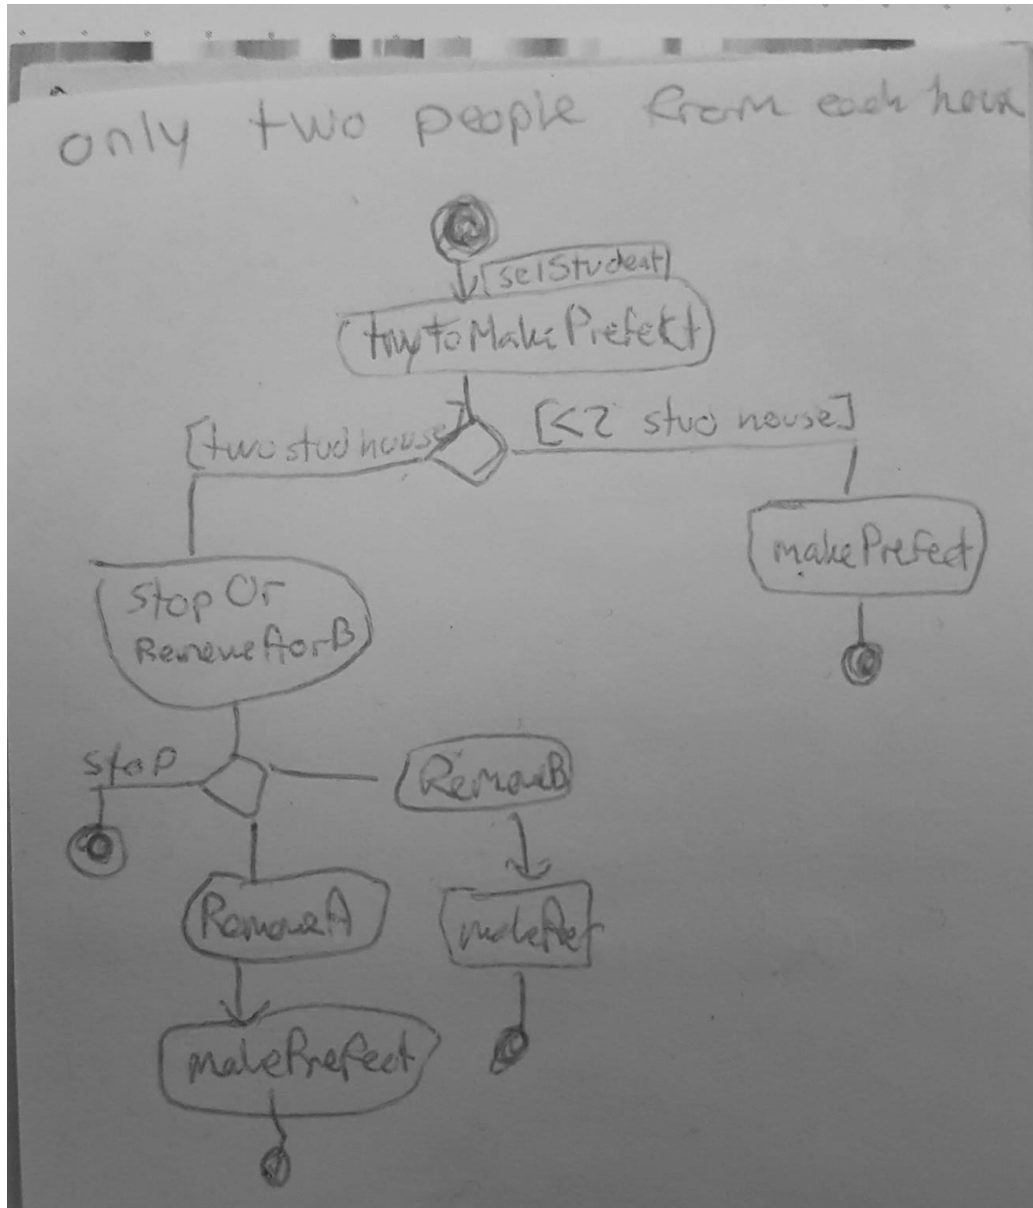 only two people from each hous
[selStudent]
tryToMakePrefekt
[two stud house]
[<2 stud house]
makePrefect
Stop Or
RemoveAorB
stop
RemoveB
RemoveA
makePref
makePrefect